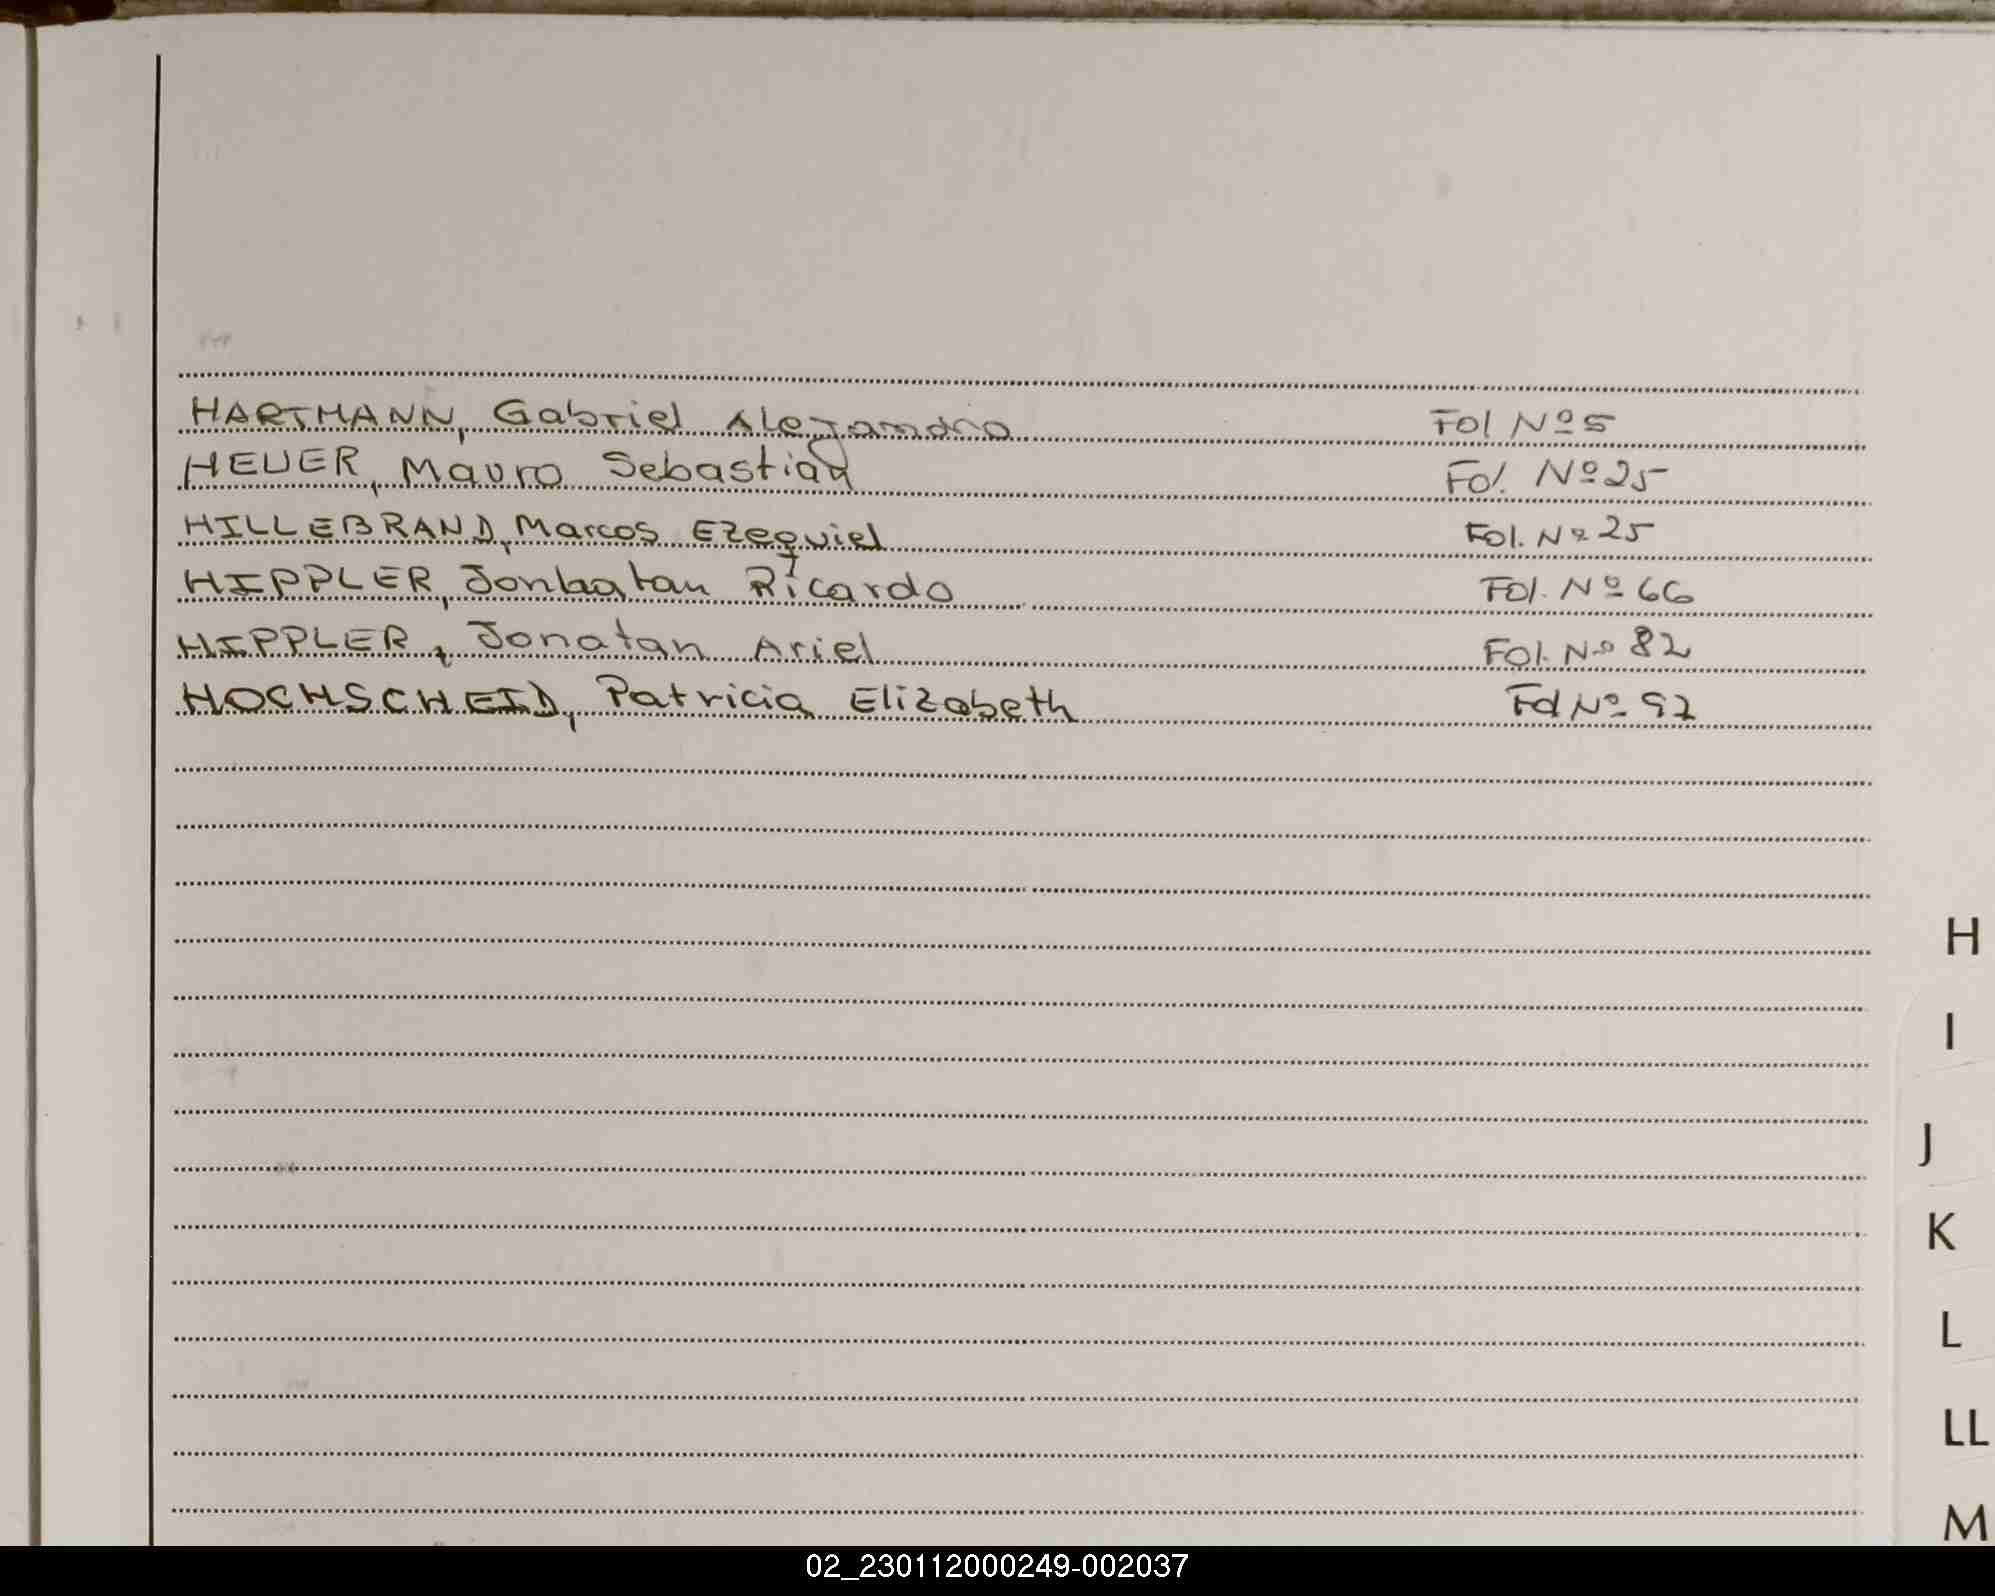 HARTMANN, Gabriel Alejandro Fol Nº 5
HEUER, Mauro Sebastian Fol. Nº 25
HILLEBRAND, Marcos Ezequiel Fol. Nº 25
HIPPLER, Jonhatan Ricardo Fol. Nº 66
HIPPLER, Jonatan Ariel Fol. Nº 82
HOCHSCHEID, Patricia Elizabeth Fol Nº
H
I
J
K
L
LL
M
02_230112000249-002037